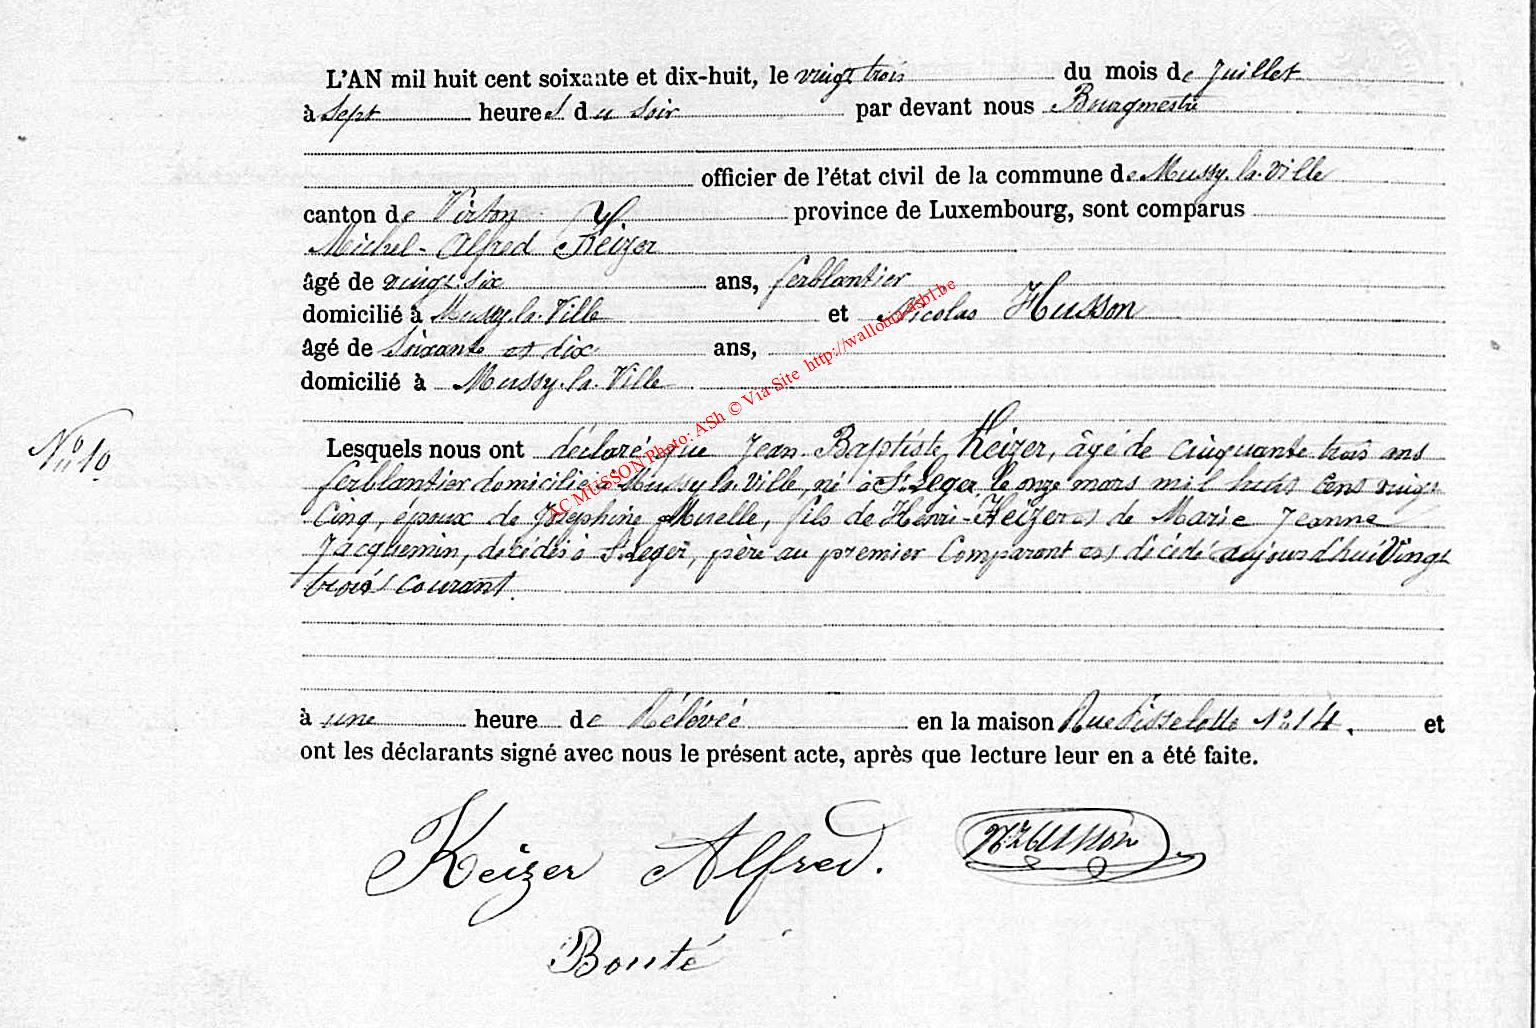 L'AN mil huit cent soixante et dix-huit, le vingt trois du mois de Juillet
à Sept heures du soir par devant nous Bourgmestre
officier de l'état civil de la commune de Mussy-la-Ville
canton de Virton province de Luxembourg, sont comparus
Michel-Alfred Keizer
âgé de vingt-six ans, ferblantier
domicilié à Mussy-la-Ville et Nicolas Husson
âgé de Soixante et dix ans,
domicilié à Mussy-la-Ville
N° 10
Lesquels nous ont déclaré que Jean-Baptiste Keizer, âgé de cinquante trois ans
ferblantier domicilié à Mussy-la-Ville, né à St Leger, le onze mars mil huit cent vingt
cinq, époux de Joséphine Muselle, fils de Henri-Keizer et de Marie Jeanne
Jacquemin, décédés à St Leger, père au premier Comparant est décédé aujourd'hui Vingt
trois courant.
à une heure de Rélévée en la maison Rue N° 14. et
ont les déclarants signé avec nous le présent acte, après que lecture leur en a été faite.
Keizer Alfred. N. Husson
Bouté
AC MUSSON Photo: ASh © Via Site http://wallonia-asbl.be